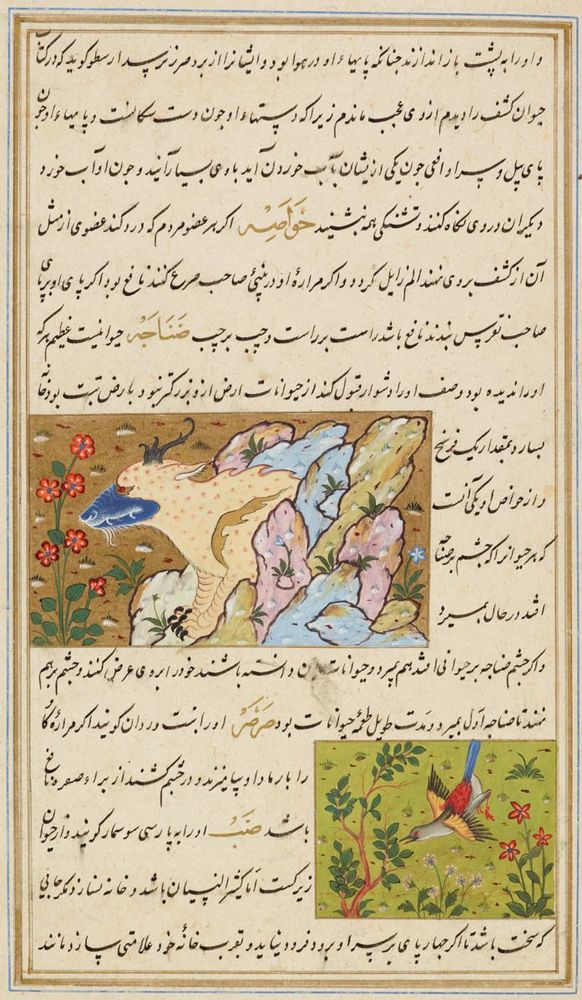 و او را به پشت باز اندازند چنانکه پایهاء او در هوا بود و ایشانرا از برد ضرر نرسد ارسطو کوید که در کتاب
حیوان کشف را دیدم از وی عجب ماندم زیرا که دستهاء او چون دست سکانست و پایهاء او چون
پای پیل و سر او افعی چون یکی از یشان بآب خوردن آید باوی بسیار آیند و چون او آب خورد
دیکران در وی نکاه کنند و تشنکی همه بنشیند خواصه اکر هر عضو مردم که درد کند عضوی از مثل
آن از کشف بروی نهند الم زایل کردد و اکر مرارهٔ او در بینی صاحب صرع کنند نافع بود اکر پای او بر پای
صاحب نقرس بندند نافع باشد راست بر راست و چپ بر چپ ضناجه حیوانیست عظیم هر که
او را ندیده بود وصف او را دشوار قبول کند از حیوانات ارض ازو بزرکتر نبود و بارض تبت بود خانه
بسازد بمقدار یک فرسنخ
و از خواص او یکی آنست
که هر حیوانرا که چشم بر ضناجه
افتد در حال بمیرد
و اکر چشم ضناجه بر حیوانی افتد هم بمیرد و حیوانات این دانسته باشند خود را بروی عرض کنند و چشم برهم
نهند تا ضناجه اول بمیرد و مدت طویل طعمهٔ حیوانات بود صرصر او را بنت وردان کویند اکر مرارهٔ کاو
را بارماد او بیامیزند و در چشم کشند از براء صفره نافع
باشد ضب او را به پارسی سوسمار کویند و از حیوان
زیرکست اما کثیر النسیان باشد و خانه نسازد مکر جایی
که سخت باشد تا اکر چهارپای بر سر او برود فرو نیاید و بقرب خانهٔ خود علامتی سازد مانند